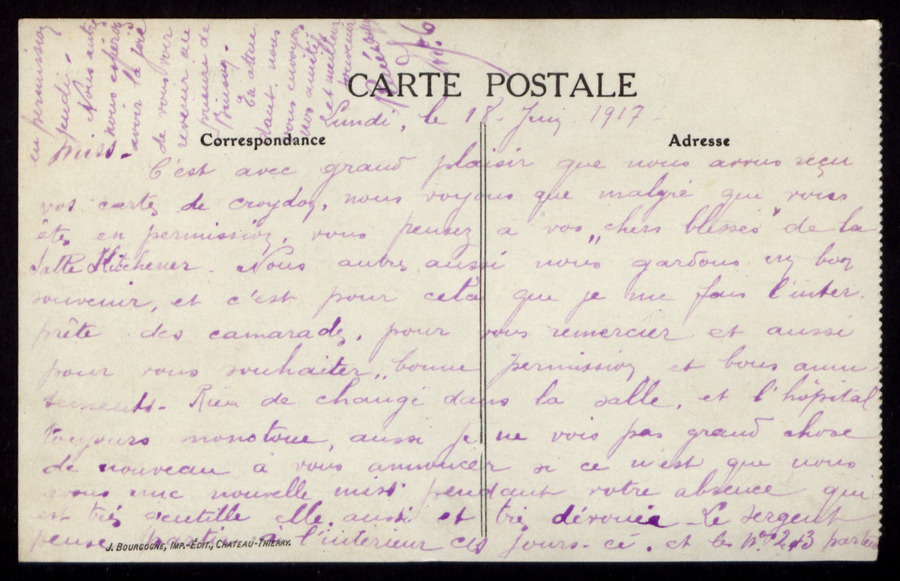 CARTE POSTALE
Correspondance
Adresse
Lundi, le 18 Juin 1917
C'est avec grand plaisir que nous avons reçu
vos cartes de croydon, nous voyons que malgré que vous
êtes en permission, vous pensez à vos "chers blessés" de la
Salle Kitchener. Nous autres aussi nous gardons un bon
souvenir, et c'est pour cela que je me fais l'inter-
prête des camarades, pour vous remercier et aussi
pour vous souhaiter, bonne permission et bons amu
sements. Rien de changé dans la salle, et l'hôpital
toujours monotone, aussi je ne vois pas grand chose
de nouveau à vous annoncer si ce n'est que nous
avons une nouvelle miss pendant votre absence qui
est très gentille elle aussi et très dévouée - Le sergent
pense partir à l'intérieur ces jours-ci. et les Nos 2 et 3 partent
J. BOURGOGNE, IMP.-EDIT., CHATEAU-THIERRY.
en permission
jeudi.
Nous autres
nous espérons
avoir la joie
de vous voir
revenir de
miss.
En atten
dant nous
vous envoyons
nos amitiés
et meilleur
souvenir